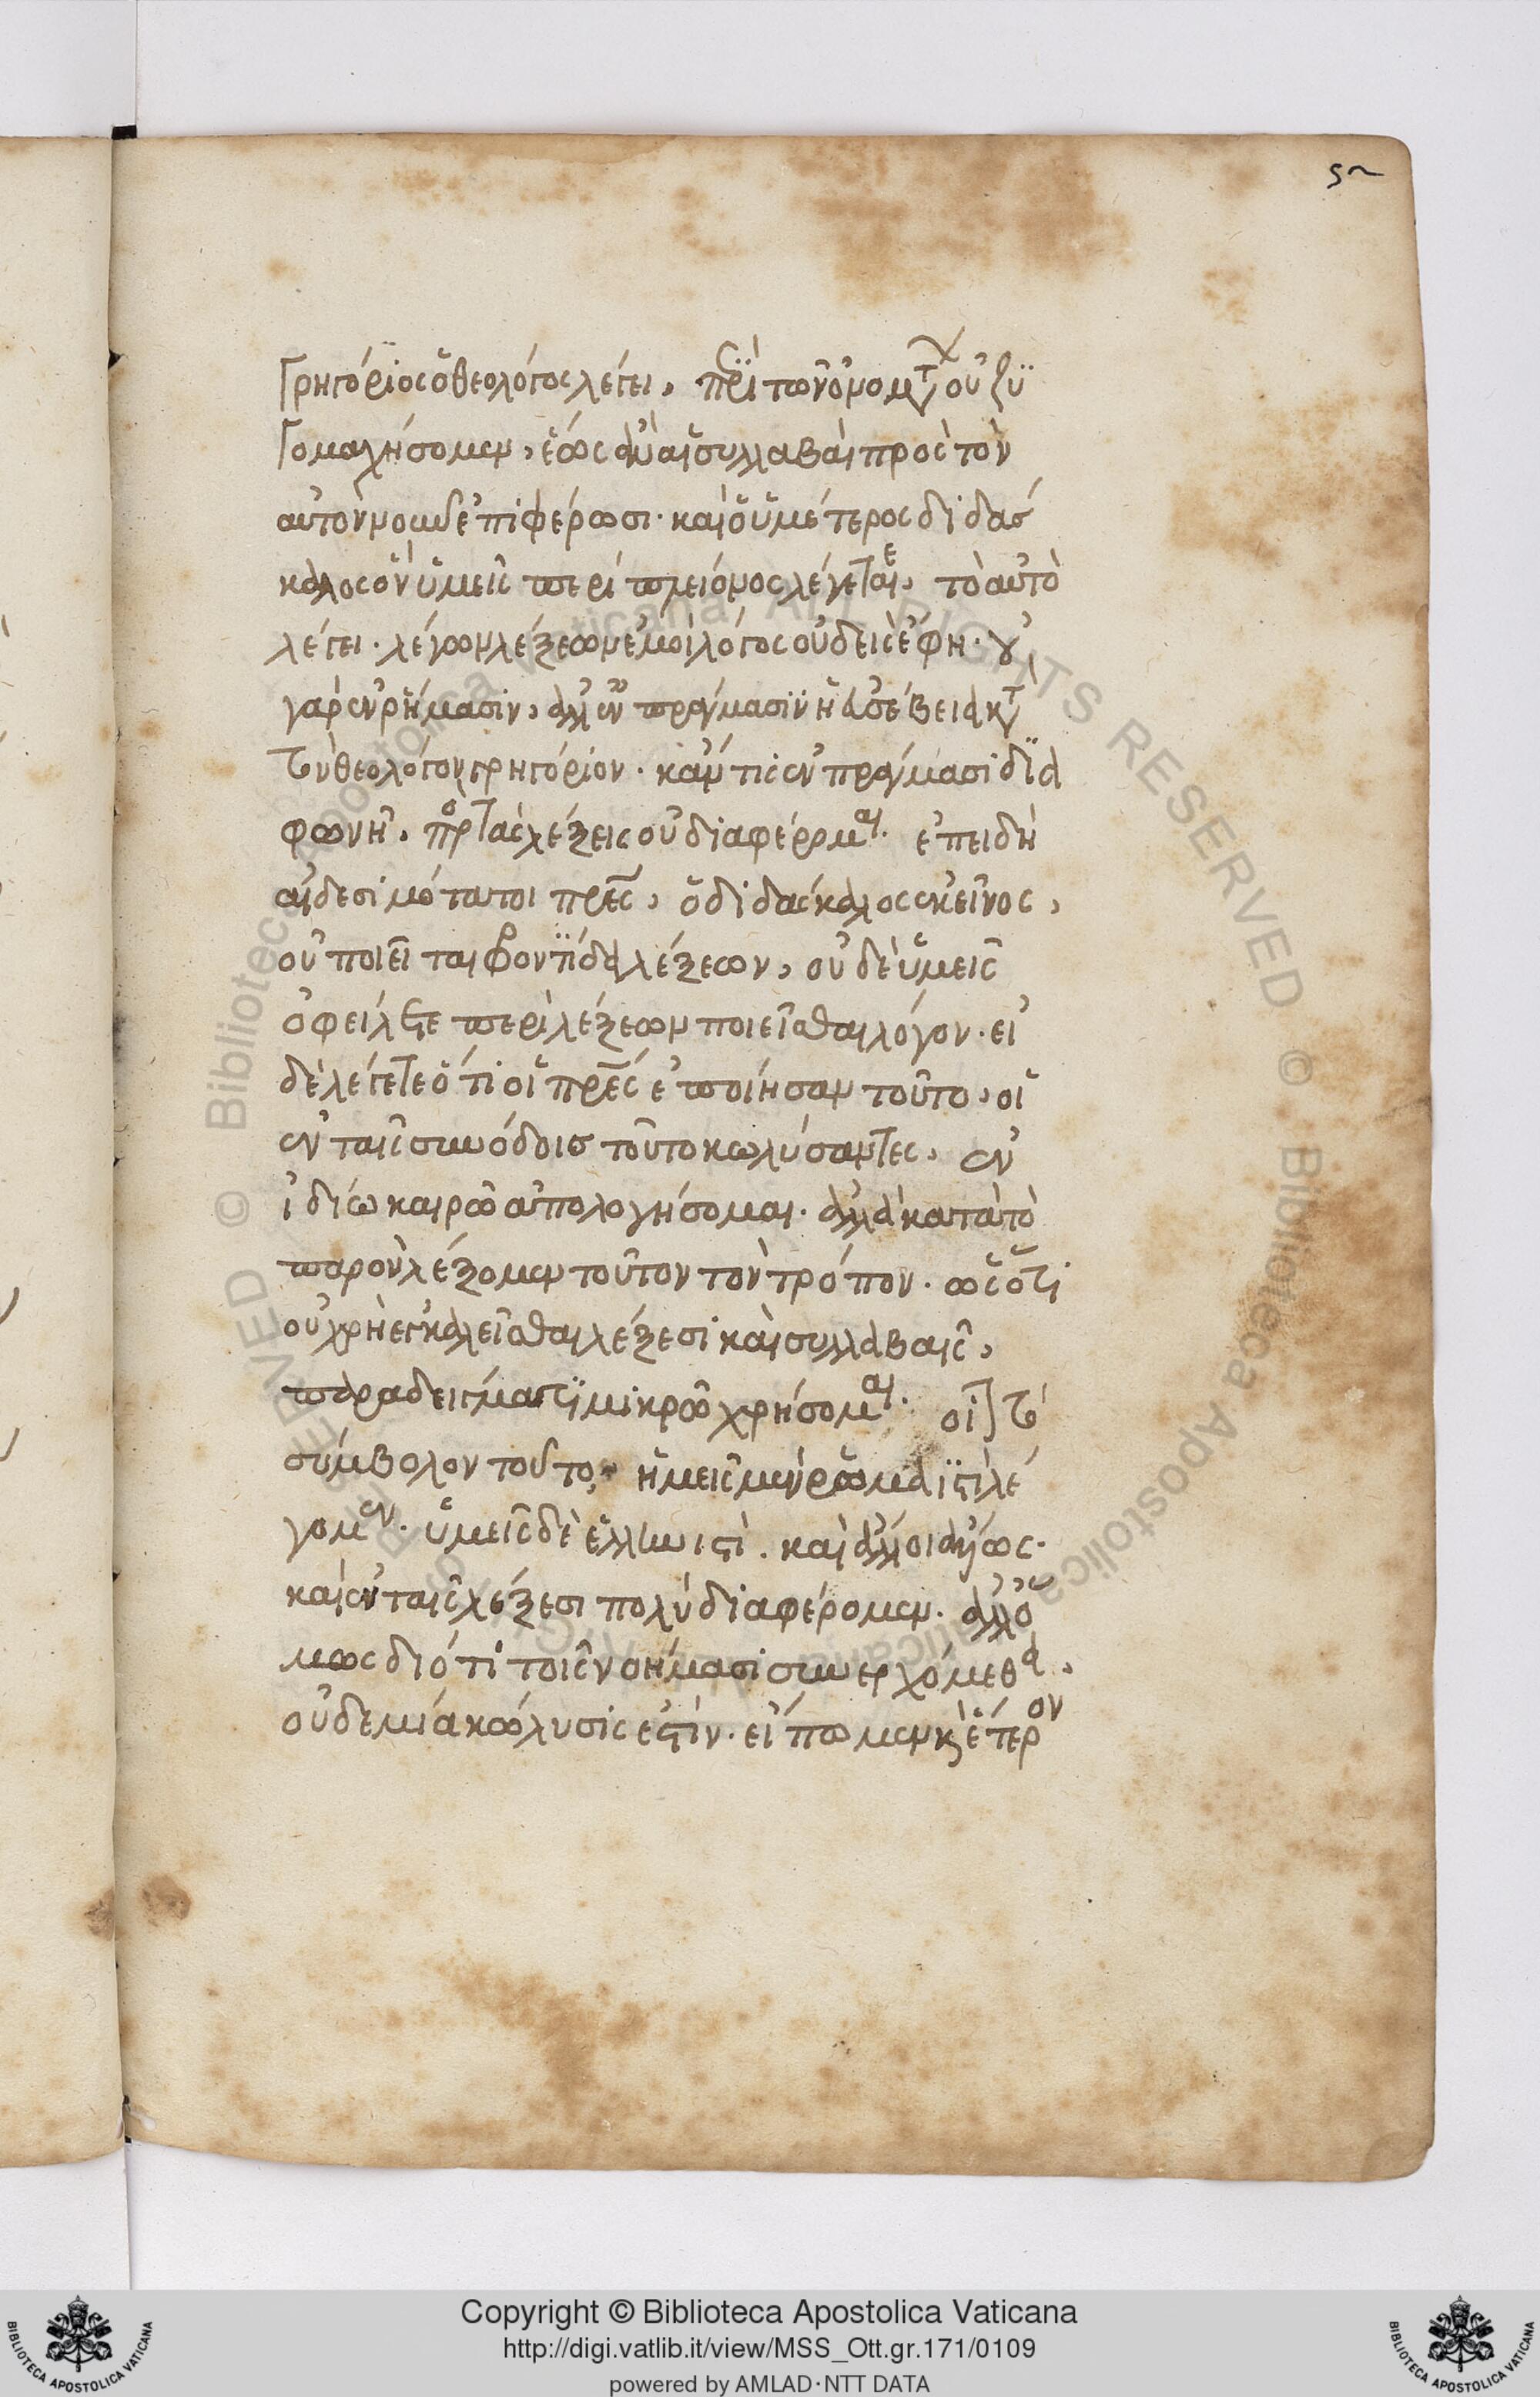 ςν
Γρηγόριος ὁ θεολόγος λέγει, περὶ τῶν ὀνομάτων οὐ ζυ
γομαχήσομεν, ἕως ἂν αἱ συλλαβαὶ πρὸς τὸν
αὐτὸν νοῦν ἐπιφέρωσι. καὶ ὁ ὑμέτερος διδάσ
καλος ὃν ὑμεῖς περὶ πλείονος λέγεται, τὸ αὐτὸ
λέγει. λέγων λέξεων ἐμοὶ λόγος οὐδεὶς ἔφη. οὐ
γὰρ ἐν ῥήμασιν, ἀλλ' ἐν πράγμασιν ἡ ἀσέβεια κατὰ
τὸν θεολόγον γρηγόριον. κἄν τις ἐν πράγμασι δια
φωνῇ, πρὸς τὰς λέξεις οὐ διαφέρομαι. ἐπειδὴ
αἰδεσιμότατοι πρες, ὁ διδάσκαλος ἐκεῖνος,
οὐ ποιεῖται φροντίδα λέξεων, οὐδὲ ὑμεῖς
ὀφείλετε περὶ λέξεων ποιεῖσθαι λόγον. εἰ
δὲ λέγετε ὅτι οἱ πρες ἐποίησαν τοῦτο, οἱ
ἐν ταῖς συνόδοις τοῦτο κωλύσαντες, ἐν
ἰδίω καιρῶ ἀπολογήσομαι. ἀλλὰ κατὰ τὸ
παρὸν λέξομεν τοῦτον τὸν τρόπον. ὡς ὅτι
οὐ χρὴ ἐγκαλεῖσθαι λέξεσι καὶ συλλαβαῖς,
παραδείγματι μικρῶ χρήσομαι. οἷον τὸ
σύμβολον τοῦτο, ἡμεῖς μὲν ῥωμαϊστὶ λέ
γομεν. ὑμεῖς δὲ ἑλληνιστὶ. καὶ ἄλλοι ἄλλως.
καὶ ἐν ταῖς λέξεσι πολὺ διαφέρομεν. ἀλλ' ὅ
μως διότι τοῖς νοήμασι συνερχόμεθα,
οὐδεμία κώλυσίς ἐστίν. εἴπωμεν καὶ ἕτερον
Copyright © Biblioteca Apostolica Vaticana
http://digi.vatlib.it/view/MSS_Ott.gr.171/0109
powered by AMLAD·NTT DATA